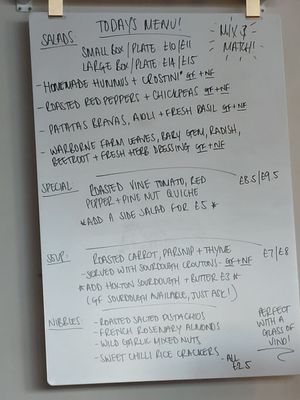 TODAYS MENU!
SALADS: SMALL BOX/PLATE £10/£11
LARGE BOX/PLATE £14/£15
MIX &
MATCH!
- HOMEMADE HUMMUS + CROSTINI* GF + NF
- ROASTED RED PEPPERS + CHICKPEAS GF + NF
- PATATAS BRAVAS, AIOLI + FRESH BASIL GF + NF
- WARBORNE FARM LEAVES, BABY GEM, RADISH,
BEETROOT + FRESH HERB DRESSING GF + NF
SPECIAL: ROASTED VINE TOMATO, RED £8.5/£9.5
PEPPER + PINE NUT QUICHE
*ADD A SIDE SALAD FOR £5*
SOUP: ROASTED CARROT, PARSNIP + THYME £7/£8
- SERVED WITH SOURDOUGH CROUTONS - GF + NF
*ADD HOXTON SOURDOUGH + BUTTER £3*
(GF SOURDOUGH AVAILABLE, JUST ASK!)
NIBBLES: - ROASTED SALTED PISTACHIOS
- FRENCH ROSEMARY ALMONDS
- WILD GARLIC MIXED NUTS
- SWEET CHILLI RICE CRACKERS - ALL
£2.5
PERFECT
WITH A
GLASS OF
VINO!